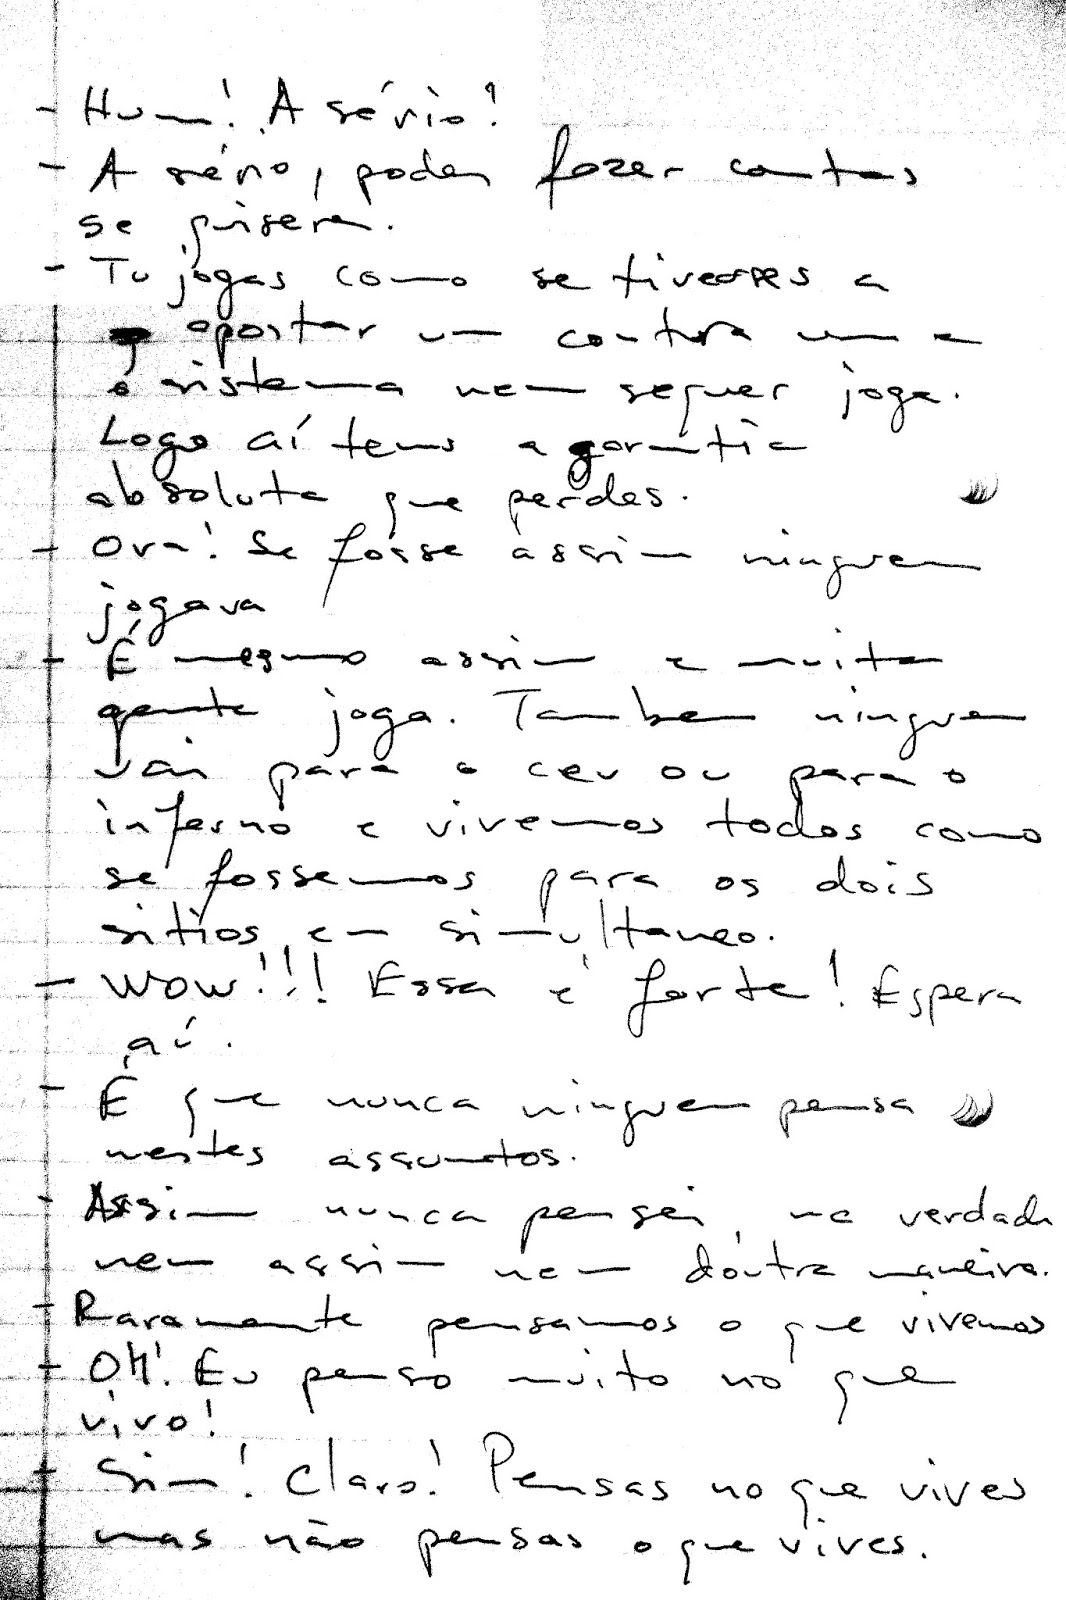 - Hum! A sério?
- A sério, podes fazer contas
se quiseres.
- Tu jogas como se tivesses a
apostar um contra um e
o sistema nem sequer joga.
Logo aí tens a garantia
absoluta que perdes.
- Ora! Se fosse assim ninguem
jogava
- É mesmo assim e muita
gente joga. Tambem ninguem
vai para o ceu ou para o
inferno e vivemos todos como
se fossemos para os dois
sitios em simultaneo.
- WOW!!! Essa é forte! Espera
aí.
- É que nunca ninguem pensa
nestes assuntos.
- Assim nunca pensei, na verdade
nem assim nem doutra maneira.
- Raramente pensamos o que vivemos
- OH! Eu penso muito no que
vivo!
- Sim! Claro! Pensas no que vives
mas não pensas o que vives.